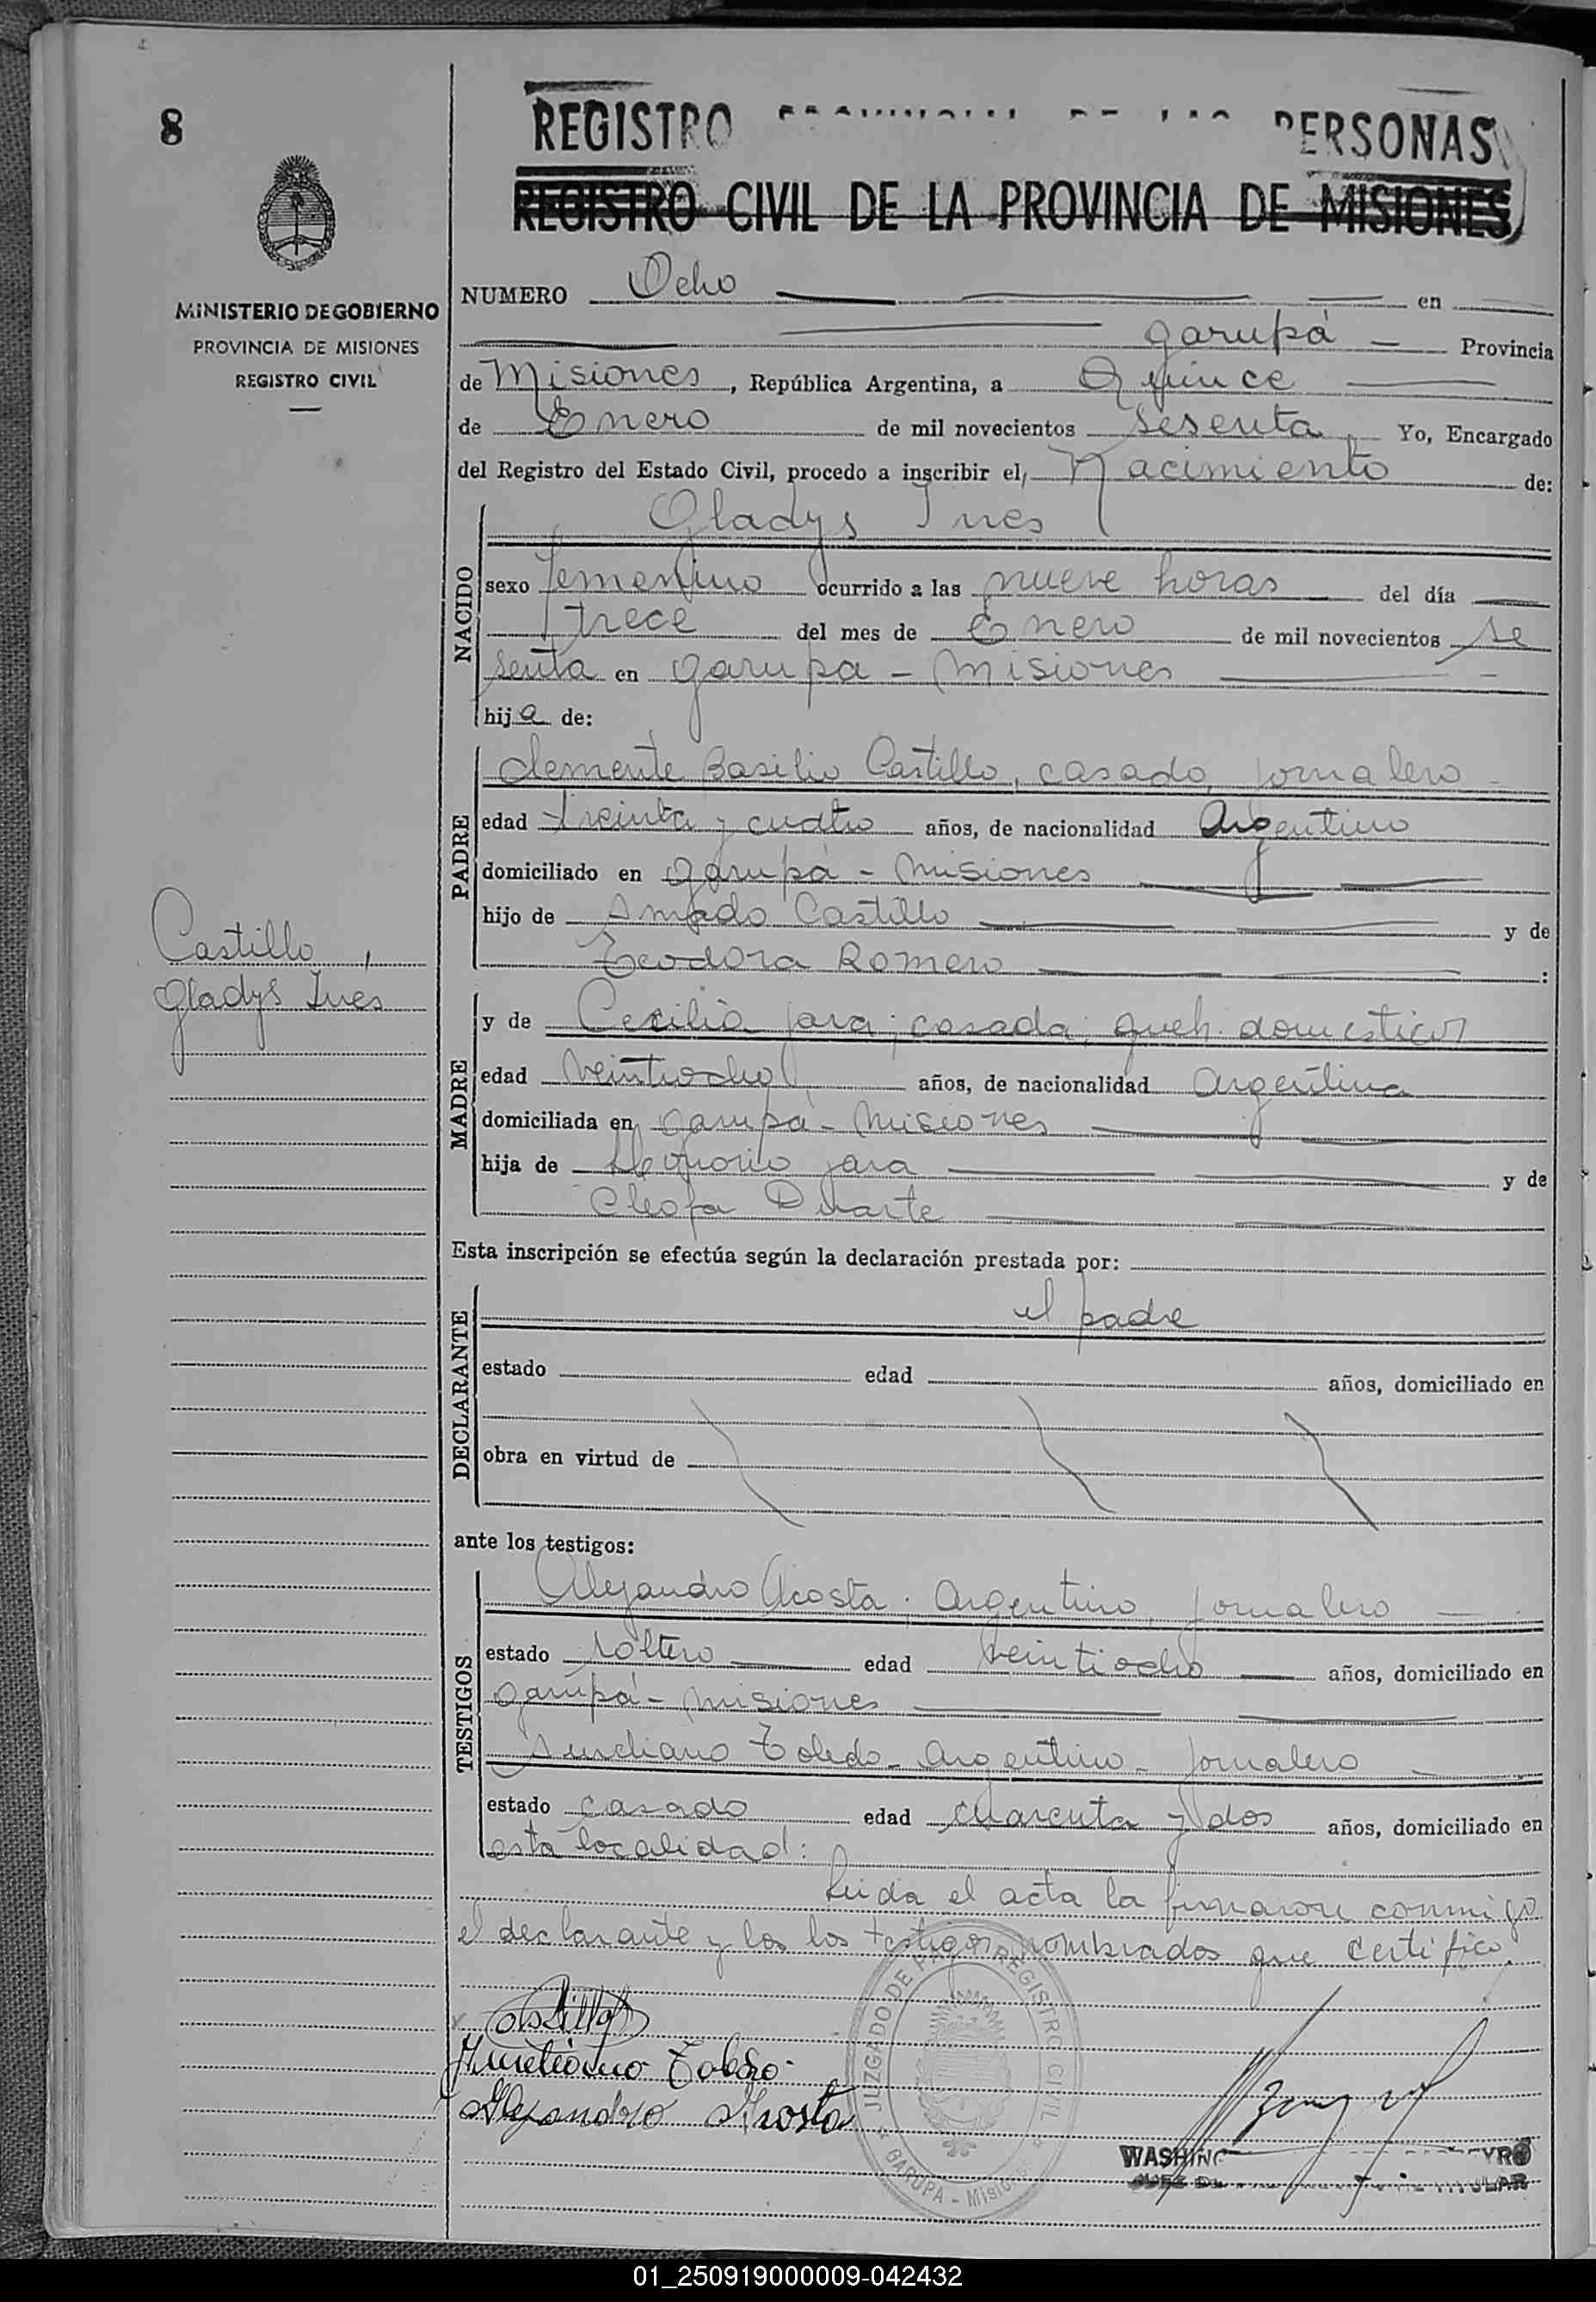 8
REGISTRO PERSONAS
REGISTRO CIVIL DE LA PROVINCIA DE MISIONES
MINISTERIO DE GOBIERNO
PROVINCIA DE MISIONES
REGISTRO CIVIL
NUMERO Ocho en
Garupá Provincia
de Misiones, República Argentina, a Quince
de Enero de mil novecientos Sesenta, Yo, Encargado
del Registro del Estado Civil, procedo a inscribir el, Nacimiento de:
Gladys Ines
NACIDO
sexo femenino ocurrido a las nueve horas del día
trece del mes de Enero de mil novecientos se
senta en Garupa - Misiones
hija de:
PADRE
Clemente Basilio Castillo, casado, jornalero
edad treinta y cuatro años, de nacionalidad Argentino
domiciliado en Garupá - Misiones
hijo de Amado Castillo y de
Teodora Romero :
Castillo,
Gladys Ines
MADRE
y de Cecilia jara; casada; queh. domesticos
edad veintiocho años, de nacionalidad argentina
domiciliada en Garupá - Misiones
hija de jara y de
Cleofa Duarte
Esta inscripción se efectúa según la declaración prestada por:
DECLARANTE
el padre
estado edad años, domiciliado en
obra en virtud de
ante los testigos:
TESTIGOS
Alejandro Acosta. Argentino, jornalero
estado soltero edad veintiocho años, domiciliado en
Garupá - Misiones
Aureliano Toledo - Argentino - Jornalero
estado casado edad cuarenta y dos años, domiciliado en
esta localidad:
Leida el acta la firmaron conmigo
el declarante y los los testigos nombrados que certifico.
Castillo
Aureliano Toledo
Alejandro Acosta
JUZGADO DE PAZ REGISTRO CIVIL
GARUPA - Misiones
TITULAR
01_250919000009-042432